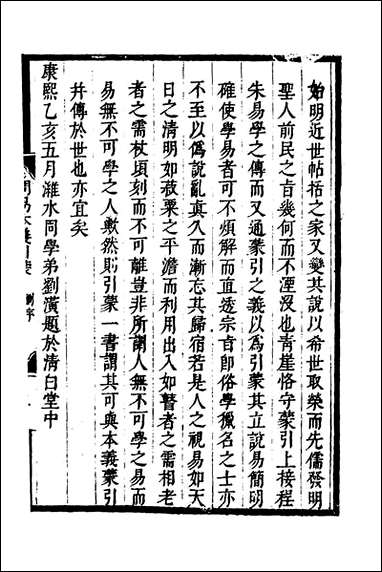 始明近世帖括之家又變其說以希世取榮而先儒發明
聖人前民之旨幾何而不湮沒也青崖恪守蒙引上接程
朱易學之傳而又通蒙引之義以為引蒙其立說易簡明
確使學易者可不煩解而直透宗旨即俗學獵名之士亦
不至以偽說亂真久而漸忘其歸宿若是人之視易如天
日之清明如菽粟之平澹而利用出入如瞽者之需相老
者之需杖頃刻而不可離豈非所謂人無不可學之易而
易無不可學之人歟然則引蒙一書謂其可與本義蒙引
并傳於世也亦宜矣
康熙乙亥五月濰水同學弟劉漢題於清白堂中
周易本義引蒙 劉序